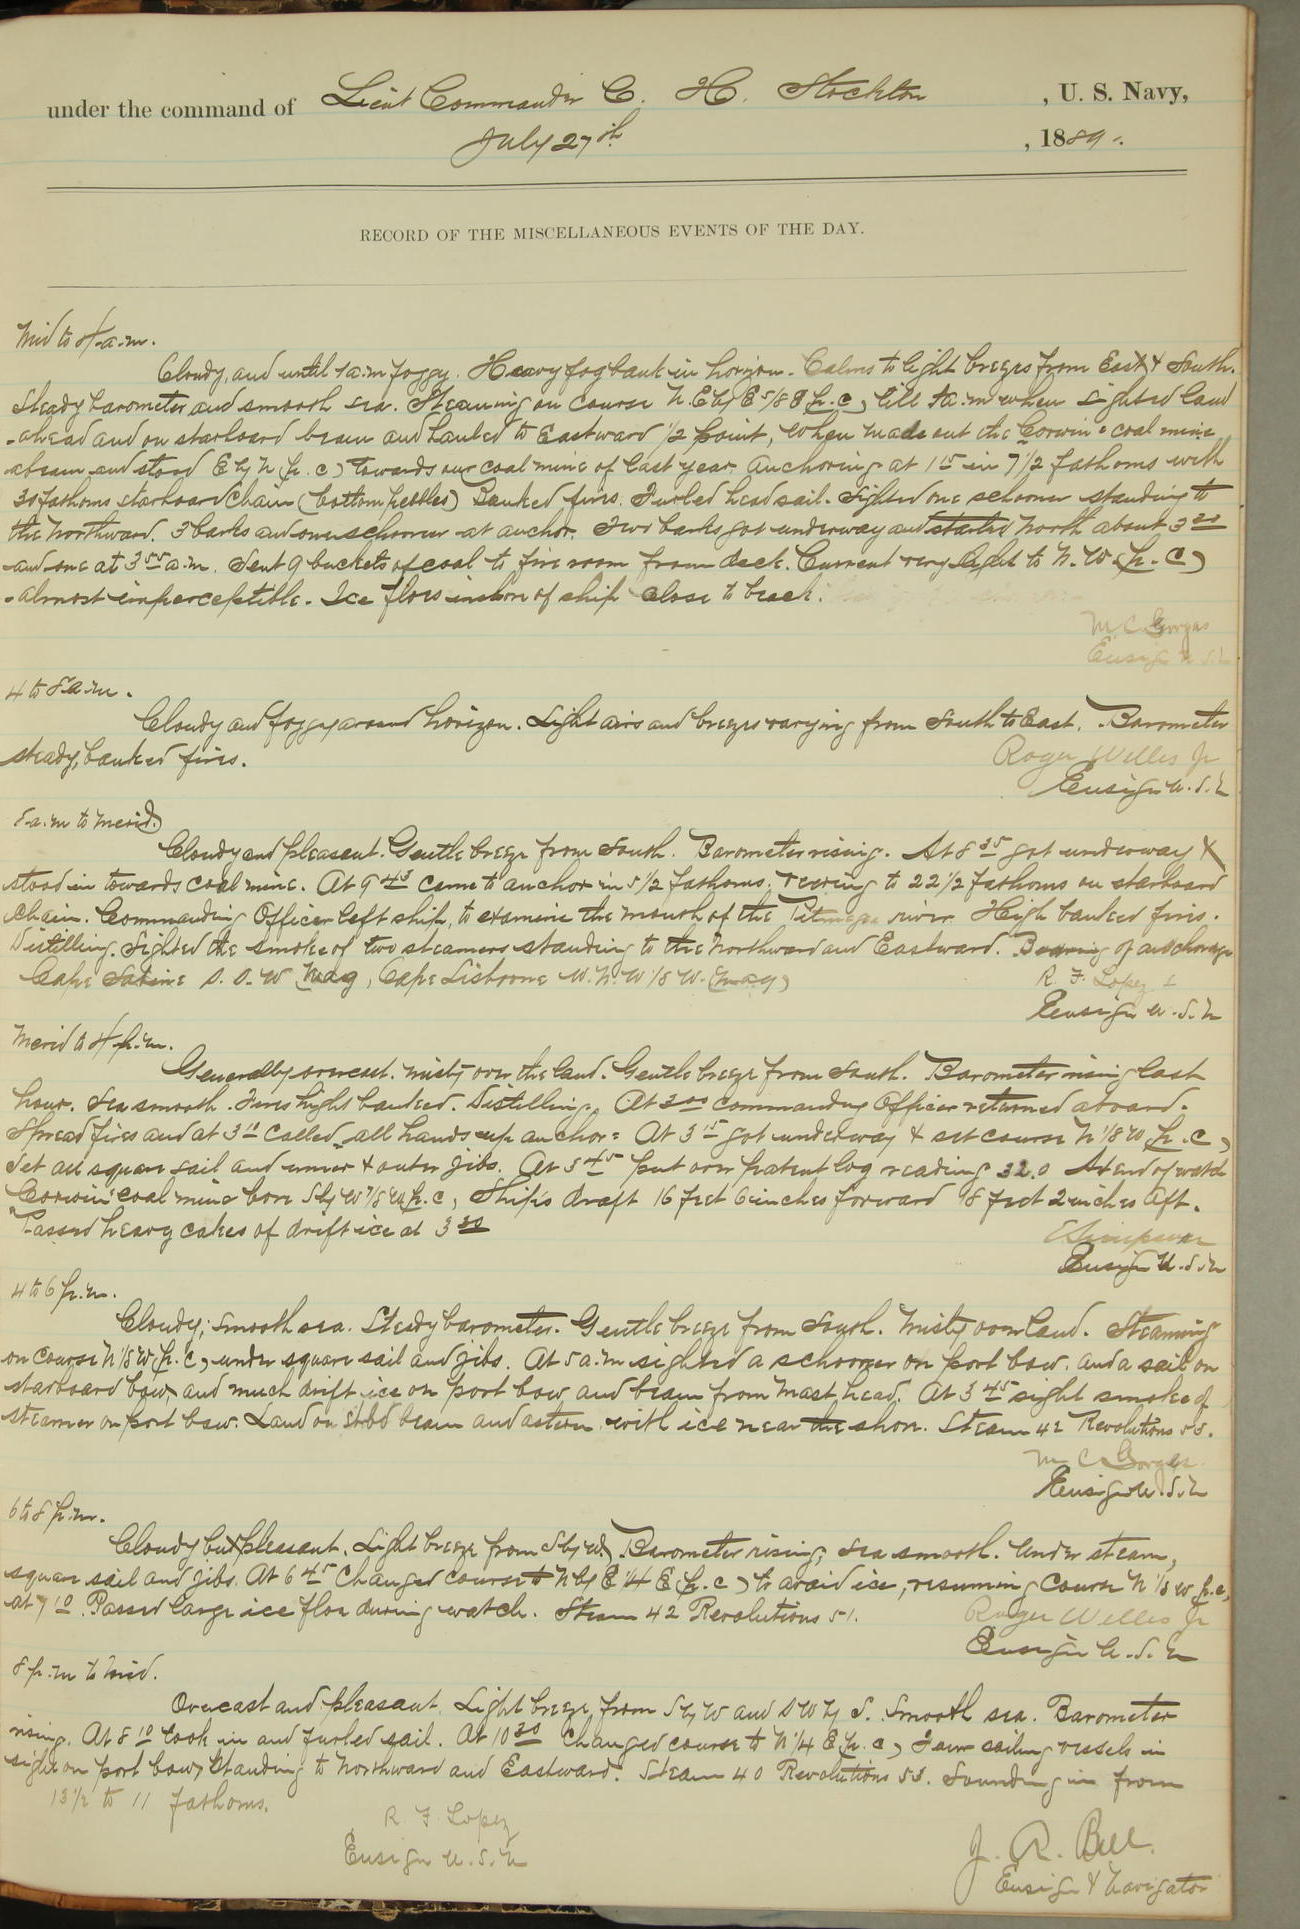 under the command of Lieut Commander C. H. Stockton , U. S. Navy,
July 27th , 1889.
RECORD OF THE MISCELLANEOUS EVENTS OF THE DAY.
Mid to 4 a.m.
Cloudy, and until 1 a.m foggy. Heavy fog bank in horizon. Calms to light breezes from East & South.
Steady barometer and smooth sea. Steaming on course N.E by E 5/8 E (p.c) till 1 a.m when sighted land
ahead and on starboard beam and hauled to Eastward 1/2 point, when made out the Corwin coal mine
abeam and stood E by N (p.c) towards our coal mine of last year, anchoring at 1 15 in 7 1/2 fathoms with
30 fathoms starboard chain (bottom pebbles) Banked fires. Furled head sail. Sighted one schooner standing to
the Northward. 3 barks and one schooner at anchor. Two barks got underway and started North about 3 20
and one at 3 55 a.m. Sent 9 buckets of coal to fire room from deck. Current very light to N.W. (p.c)
almost imperceptible. Ice floes inshore of ship close to beach.
M C Gorgas
Ensign U.S.N
4 to 8 a.m.
Cloudy and foggy around horizon. Light airs and breezes varying from South to East. Barometer
steady, banked fires.
Roger Welles Jr
Ensign U.S.N
8 a.m to Merid.
Cloudy and pleasant. Gentle breeze from South. Barometer rising. At 8 35 got underway &
stood in towards coal mine. At 9 43 came to anchor in 5 1/2 fathoms, veering to 22 1/2 fathoms on starboard
chain. Commanding Officer left ship, to examine the mouth of the Pitmegea river. High banked fires.
Distilling. Sighted the smoke of two steamers standing to the Northward and Eastward. Bearing of anchorage
Cape Sabine S.S.W (mag), Cape Lisburne W.N.W 1/8 W. (mag)
R. F. Lopez
Ensign U.S.N
Merid to 4 p.m.
Generally overcast. misty over the land. Gentle breeze from South. Barometer rising last
hour. Sea smooth. Fires high banked. Distilling. At 3 00 Commanding Officer returned aboard.
Spread fires and at 3 11 called "all hands up anchor" At 3 15 got underway & set course N 1/8 W (p.c)
Set all square sail and inner & outer jibs. At 3 45 put over patent log reading 32.0 At end of watch
Corwin coal mine bore S by W 7/8 W (p.c), Ship's draft 16 feet 6 inches forward 18 feet 2 inches aft.
Passed heavy cakes of drift ice at 3 30
E Simpson
Ensign U.S.N
4 to 6 p.m.
Cloudy; smooth sea. Steady barometer. Gentle breeze from South. Misty over land. Steaming
on course N 1/8 W (p.c), under square sail and jibs. At 5 a.m sighted a schooner on port bow, and a sail on
starboard bow, and much drift ice on port bow and beam from mast head. At 3 45 sight smoke of
steamer on port bow. Land on stbd beam and astern with ice near the shore. Steam 42 Revolutions 53.
M C Gorgas.
Ensign U.S.N
6 to 8 p.m.
Cloudy but pleasant. Light breeze from S by W. Barometer rising; sea smooth. Under steam,
square sail and jibs. At 6 45 changed course to N by E 1/4 E (p.c) to avoid ice, resuming course N 1/8 W (p.c)
at 7 10. Passed large ice floe during watch. Steam 42 Revolutions 51.
Roger Welles Jr
Ensign U.S.N
8 p.m to Mid.
Overcast and pleasant. Light breeze, from S by W and SW by S. Smooth sea. Barometer
rising. At 8 10 took in and furled sail. At 10 30 changed course to N 1/4 E (p.c) Four sailing vessels in
sight on port bow, standing to Northward and Eastward. Steam 40 Revolutions 53. Sounding in from
13 1/2 to 11 fathoms.
R F Lopez
Ensign U.S.N
J. R. Bull.
Ensign & Navigator